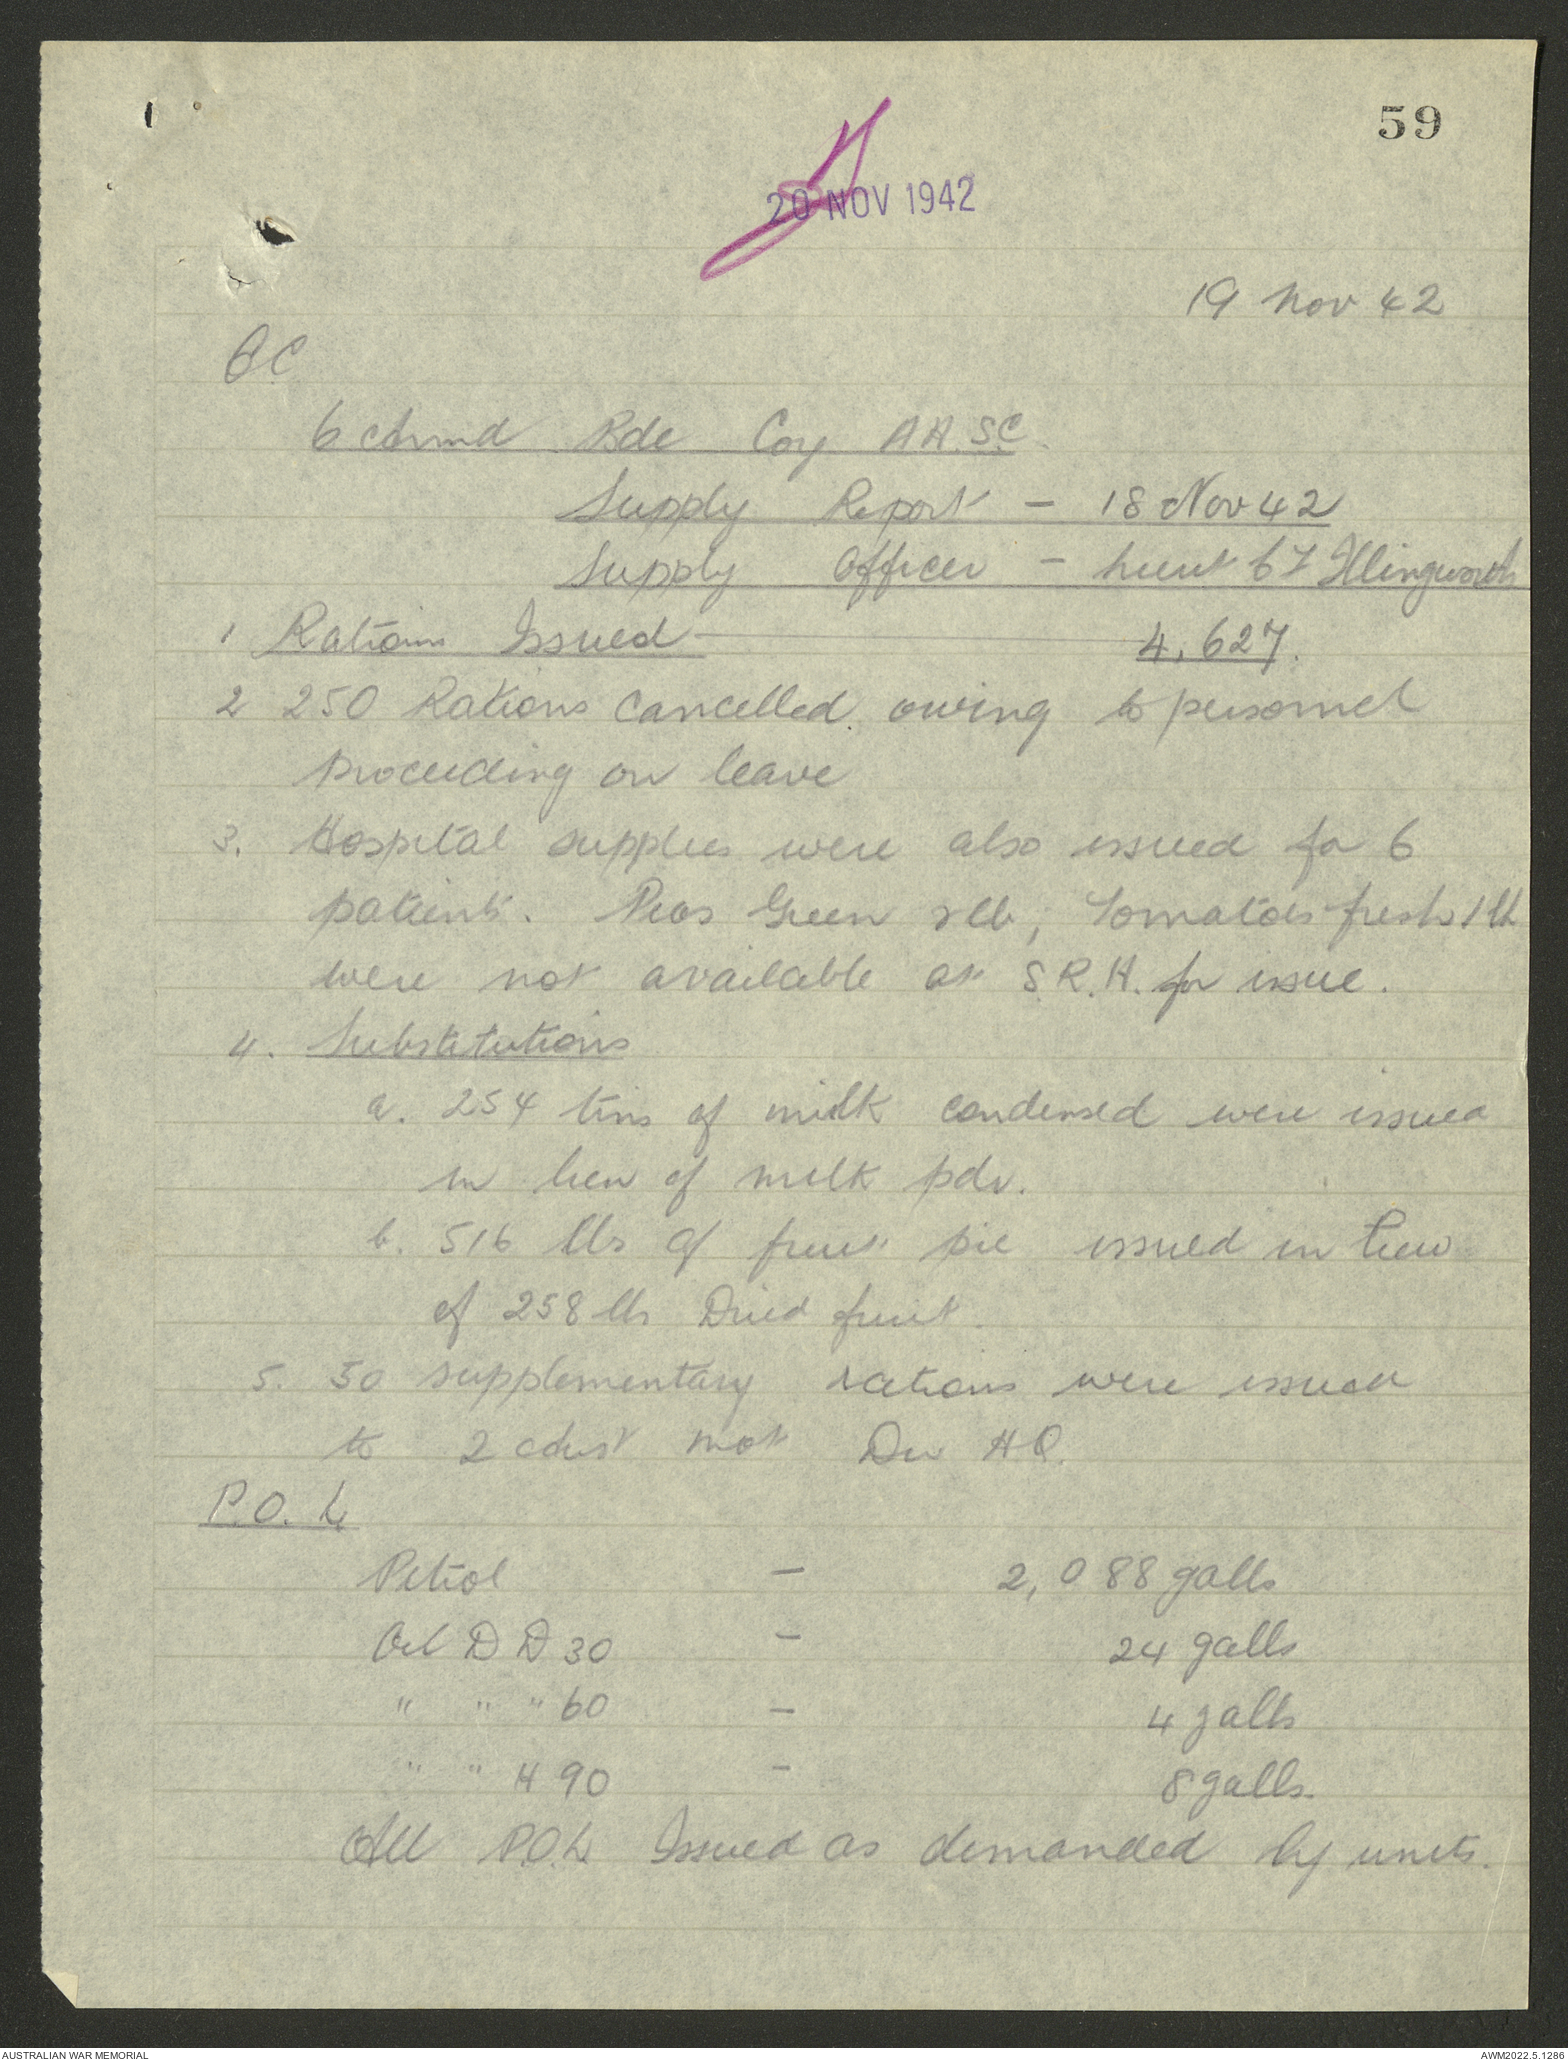 59
20 NOV 1942
19 Nov 42
OC
6 Armd Bde Coy AASC
Supply Report - 18 Nov 42
Supply Officer - Lieut Illingworth
1 Rations Issued 4,627.
2 250 Rations cancelled owing to personnel
proceeding on leave
3. Hospital supplies were also issued for 6
patients. Peas Green lb, Tomatoes fresh 1 lb
were not available at S.R.H. for issue.
4. Substitutions
a. 254 tins of milk condensed were issued
in lieu of milk pdr.
b. 516 lbs of fruit pie issued in lieu
of 258 lbs Dried fruit.
5. 50 supplementary rations were issued
to 2 Aust Mot Div HQ.
P.O.L
Petrol - 2,088 galls
Oil D D 30 - 24 galls
" " " 60 - 4 galls
" " H 90 - 8 galls.
All P.O.L Issued as demanded by units.
AUSTRALIAN WAR MEMORIAL
AWM2022.5.1286